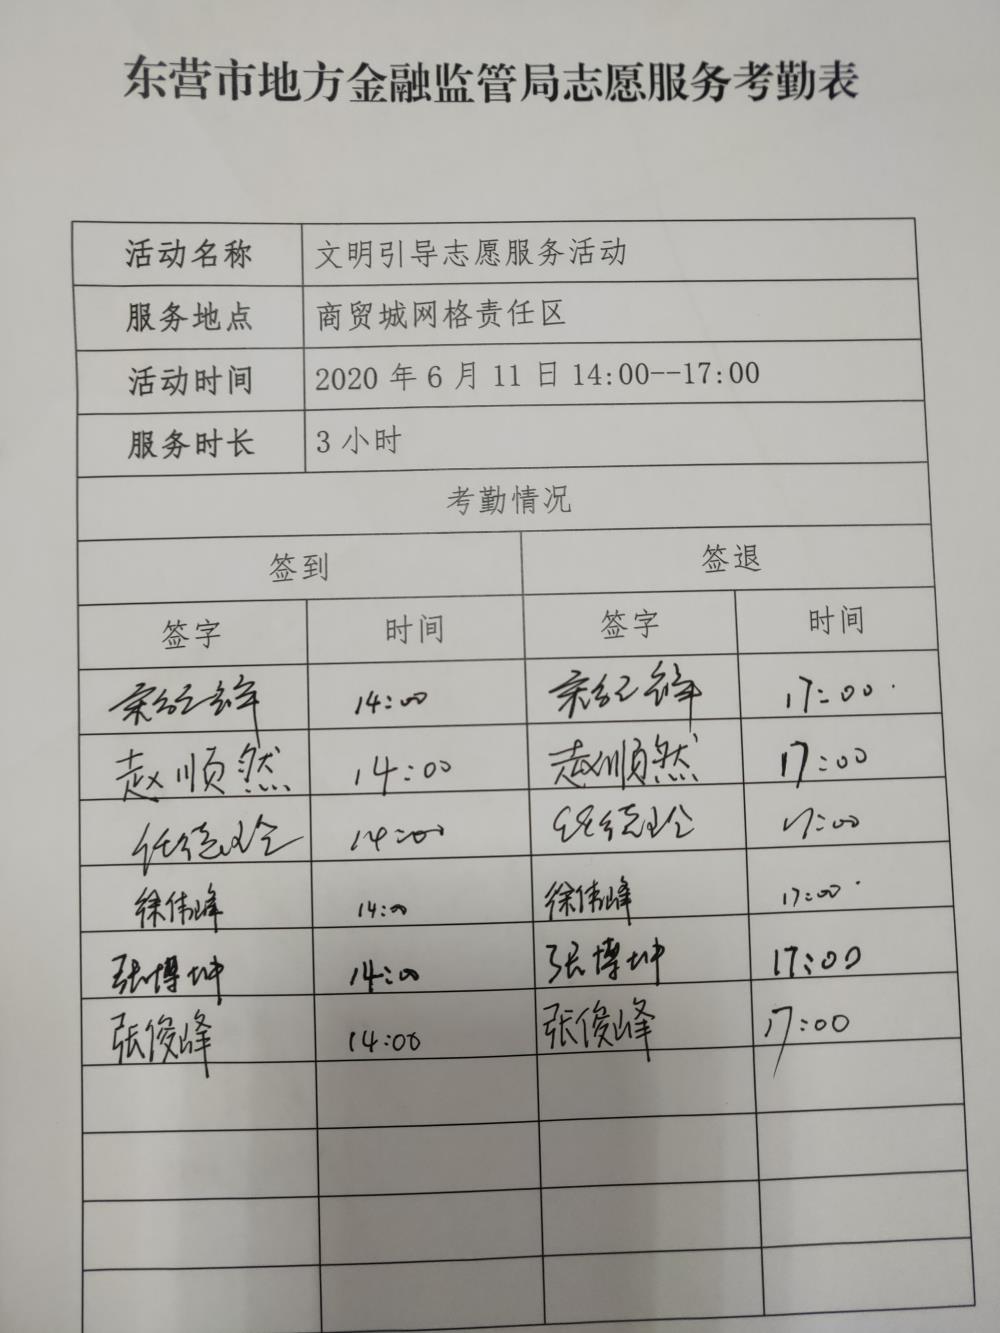 东营市地方金融监管局志愿服务考勤表
活动名称 文明引导志愿服务活动
服务地点 商贸城网格责任区
活动时间 2020年6月11日14:00--17:00
服务时长 3小时
考勤情况
签到 签退
签字 时间 签字 时间
14:00 17:00
赵顺然 14:00 赵顺然 17:00
14:00 17:00
徐伟峰 14:00 徐伟峰 17:00
张博坤 14:00 张博坤 17:00
张俊峰 14:00 张俊峰 17:00